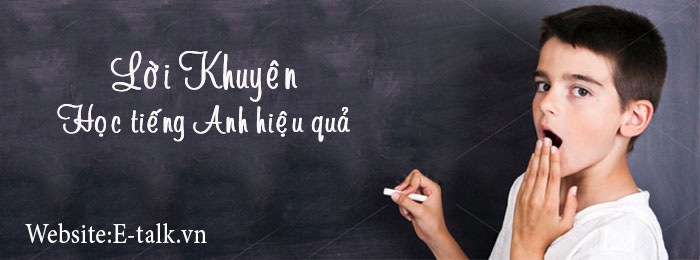 Lời Khuyên
Học tiếng Anh hiệu quả
Website:E-talk.vn